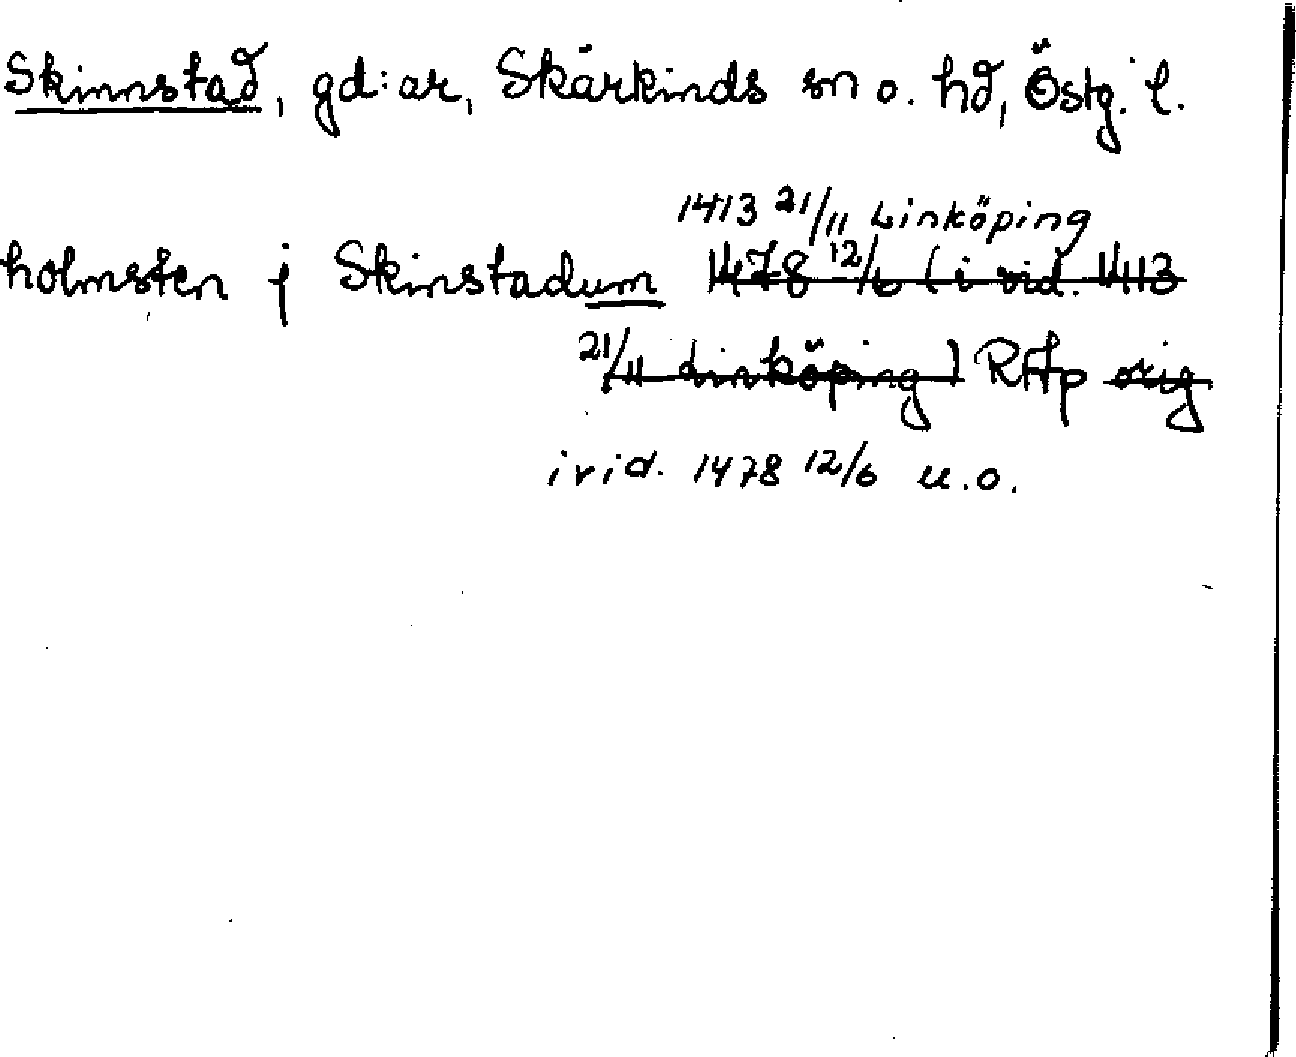 Skinnstad, gd:ar, Skärkinds sn o. hd, Östg. l.
1413 21/11 Linköping
holmsten j Skinstadum 1478 12/6 (i vid. 1413
21/11 Linköping) RAp orig
i vid. 1478 12/6 u.o.